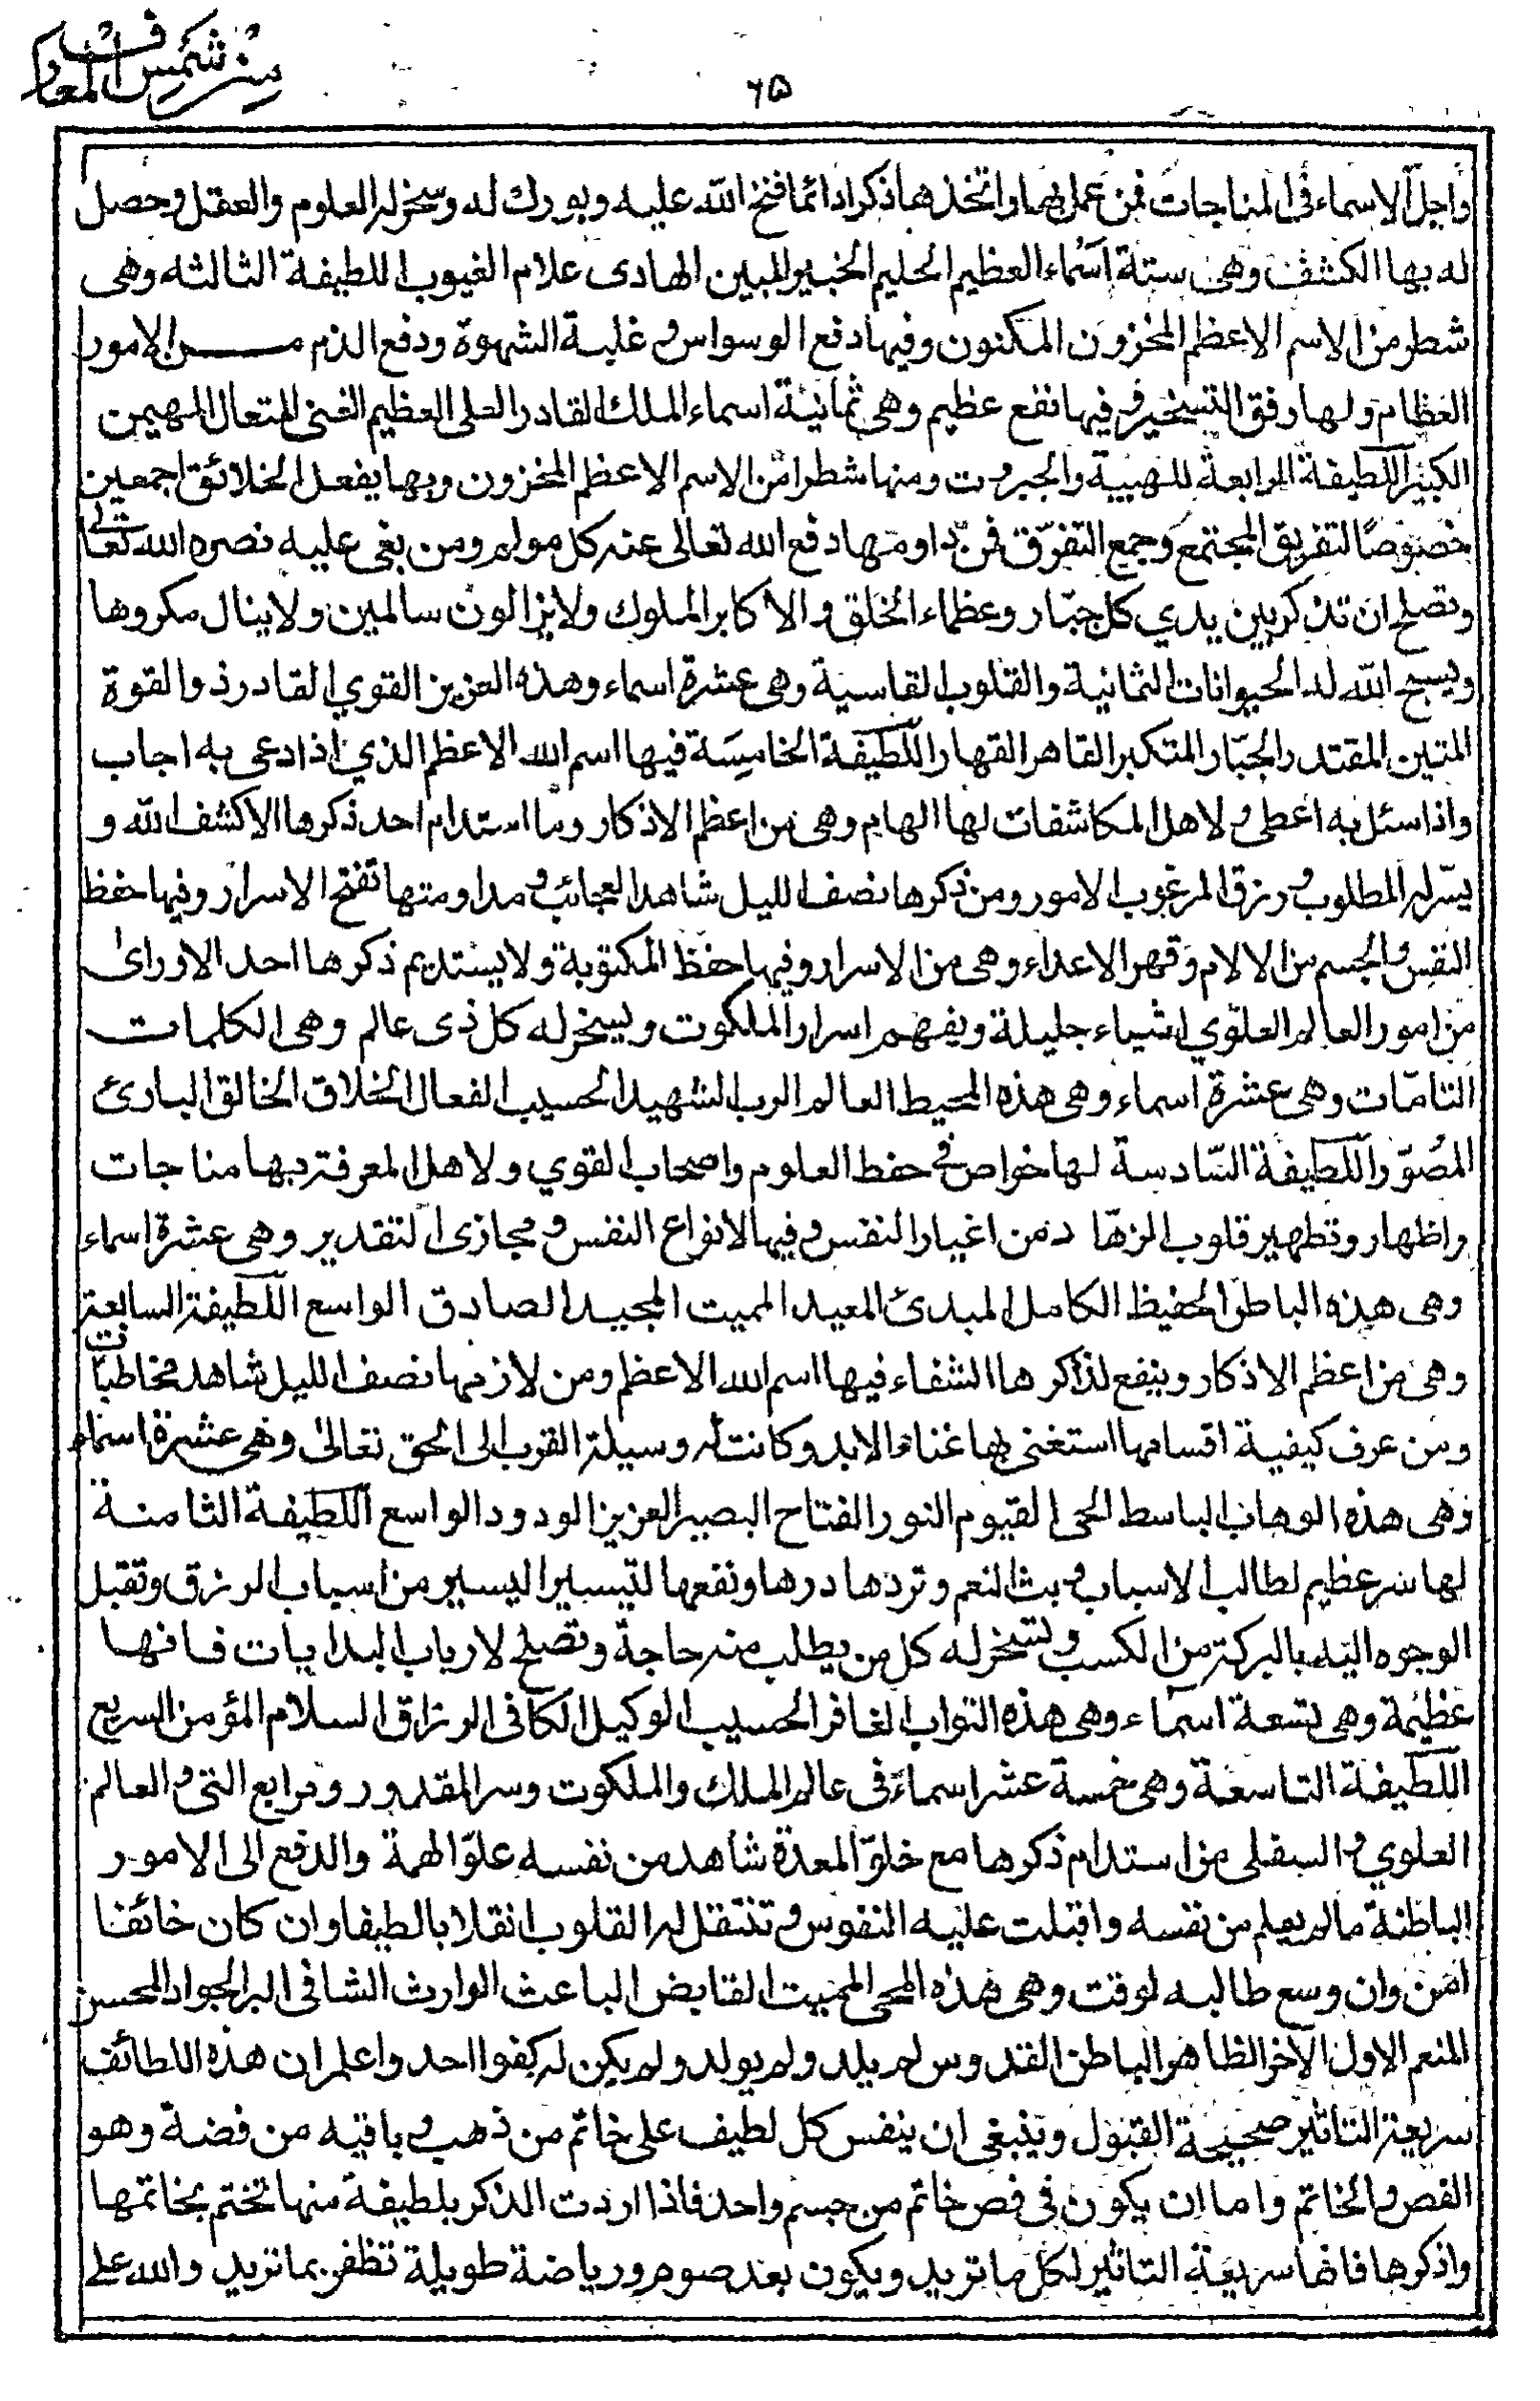 من شمس المعارف
٦٥
واجل الاسماء فى المناجات فمن عمل بها واتخذها ذكرا دائما فتح الله عليه وبورك له وسخر له العلوم والعقل وحصل
له بها الكشف وهى ستة اسماء العظيم الحليم الخبير المبين الهادى علام الغيوب اللطيفة الثالثه وهى
شطر من الاسم الاعظم المخزون المكنون وفيها دفع الوسواس و غلبة الشهوة ودفع الذم من الامور
العظام ولها رفق التسخير و فيها نفع عظيم وهى ثمانية اسماء الملك القادر العلى العظيم الغنى المتعال المهيمن
الكبير اللطيفة الرابعة للهيبة والجبروت ومنها شطرا من الاسم الاعظم المخزون وبها يفعل الخلائق اجمعين
خصوصا لتفريق المجتمع وجمع التفرّق فمن داومها دفع الله تعالى عنه كل مولم ومن بغى عليه نصره الله تعالى
وتصلح ان تذكر بين يدي كل جبّار وعظماء الخلق و الاكابر الملوك ولايزالون سالمين ولاينال مكروها
ويسبح الله له الحيوانات الثمانية والقلوب القاسية وهى عشرة اسماء وهذه العزيز القوي القادر ذوالقوة
المتين المقتدر الجبّار المتكبر القاهر القهار اللّطيفة الخامسة فيها اسم الله الاعظم الذي اذا دعى به اجاب
واذا سئل به اعطى و لاهل المكاشفات لها الهام وهى من اعظم الاذكار وما استدام احد ذكرها الاكشف الله و
يسّر له المطلوب و رزق المرغوب الامور ومن ذكرها نصف الليل شاهد العجائب و مداومتها تفتح الاسرار وفيها حفظ
النفس و الجسم من الالام وقهر الاعداء وهى من الاسرار وفيها حفظ المكتوبة ولايستديم ذكرها احد الاوراىٰ
من امور العالم العلوّي اشياء جليلة ويفهم اسرار الملكوت ويسخر له كل ذى عالم وهى الكلمات
التامّات وهى عشرة اسماء وهى هذه المحيط العالم الرب الشهيد الحسيب الفعال الخلاق الخالق البارئ
المصوّر اللّطيفة السّادسة لها خواص فى حفظ العلوم واصحاب القوي ولاهل المعرفة بها مناجات
واظهار وتطهير قلوب الزهّاد من اغيار النفس و فيها لانواع النفس و مجازى التقدير وهى عشرة اسماء
وهى هذه الباطن الحفيظ الكامل المبدئ المعيد المميت المجيد الصادق الواسع اللّطيفة السابعة
وهى من اعظم الاذكار وينفع لذاكرها الشفاء فيها اسم الله الاعظم ومن لازمها نصف الليل شاهد مخاطبات
ومن عرف كيفية اقسامها استغنى بها غناء الابد وكانت له وسيلة القرب الى الحق تعالىٰ وهى عشرة اسماء
وهى هذه الوهاب الباسط الحى القيوم النور الفتاح البصير العزيز الودود الواسع اللّطيفة الثامنة
لها سر عظيم لطالب الاسباب و بث النعم وتردها درها ونفعها لتيسير اليسير من اسباب الرزق وتقبل
الوجوه اليه بالبركة من الكسب و تسخر له كل من يطلب منه حاجة وتصلح لارباب البدايات فانها
عظيمة وهى تسعة اسماء وهى هذه التواب الغافر الحسيب الوكيل الكافى الرزاق السلام المؤمن السريع
اللّطيفة التاسعة وهى خمسة عشر اسماء فى عالم الملك والملكوت وسر المقدور و مرابع التى و العالم
العلوي و السفلى من استدام ذكرها مع خلوّ المعدة شاهد من نفسه علوّ الهمة والدفع الى الامور
الباطنة مالم يعلم من نفسه واقبلت عليه النفوس و تنتقل له القلوب انقلابا لطيفا وان كان خائفا
امن وان وسع طالبه لوقت وهى هذه المحى المميت القابض الباعث الوارث الشافى البر الجواد المحسن
المنعم الاول الآخر الظاهر الباطن القدوس لم يلد ولم يولد ولم يكن له كفوا احد واعلم ان هذه اللطائف
سريعة التاثير صحيحة القبول وينبغى ان ينفس كل لطيف على خاتم من ذهب و باقيه من فضة وهو
الفص و الخاتم واما ان يكون فى فص خاتم من جسم واحد فاذا اردت الذكر بلطيفة منها تختم بخاتمها
واذكرها فانها سريعة التاثير لكل ما تريد ويكون بعد صوم ورياضة طويلة تظفر بما تريد والله على